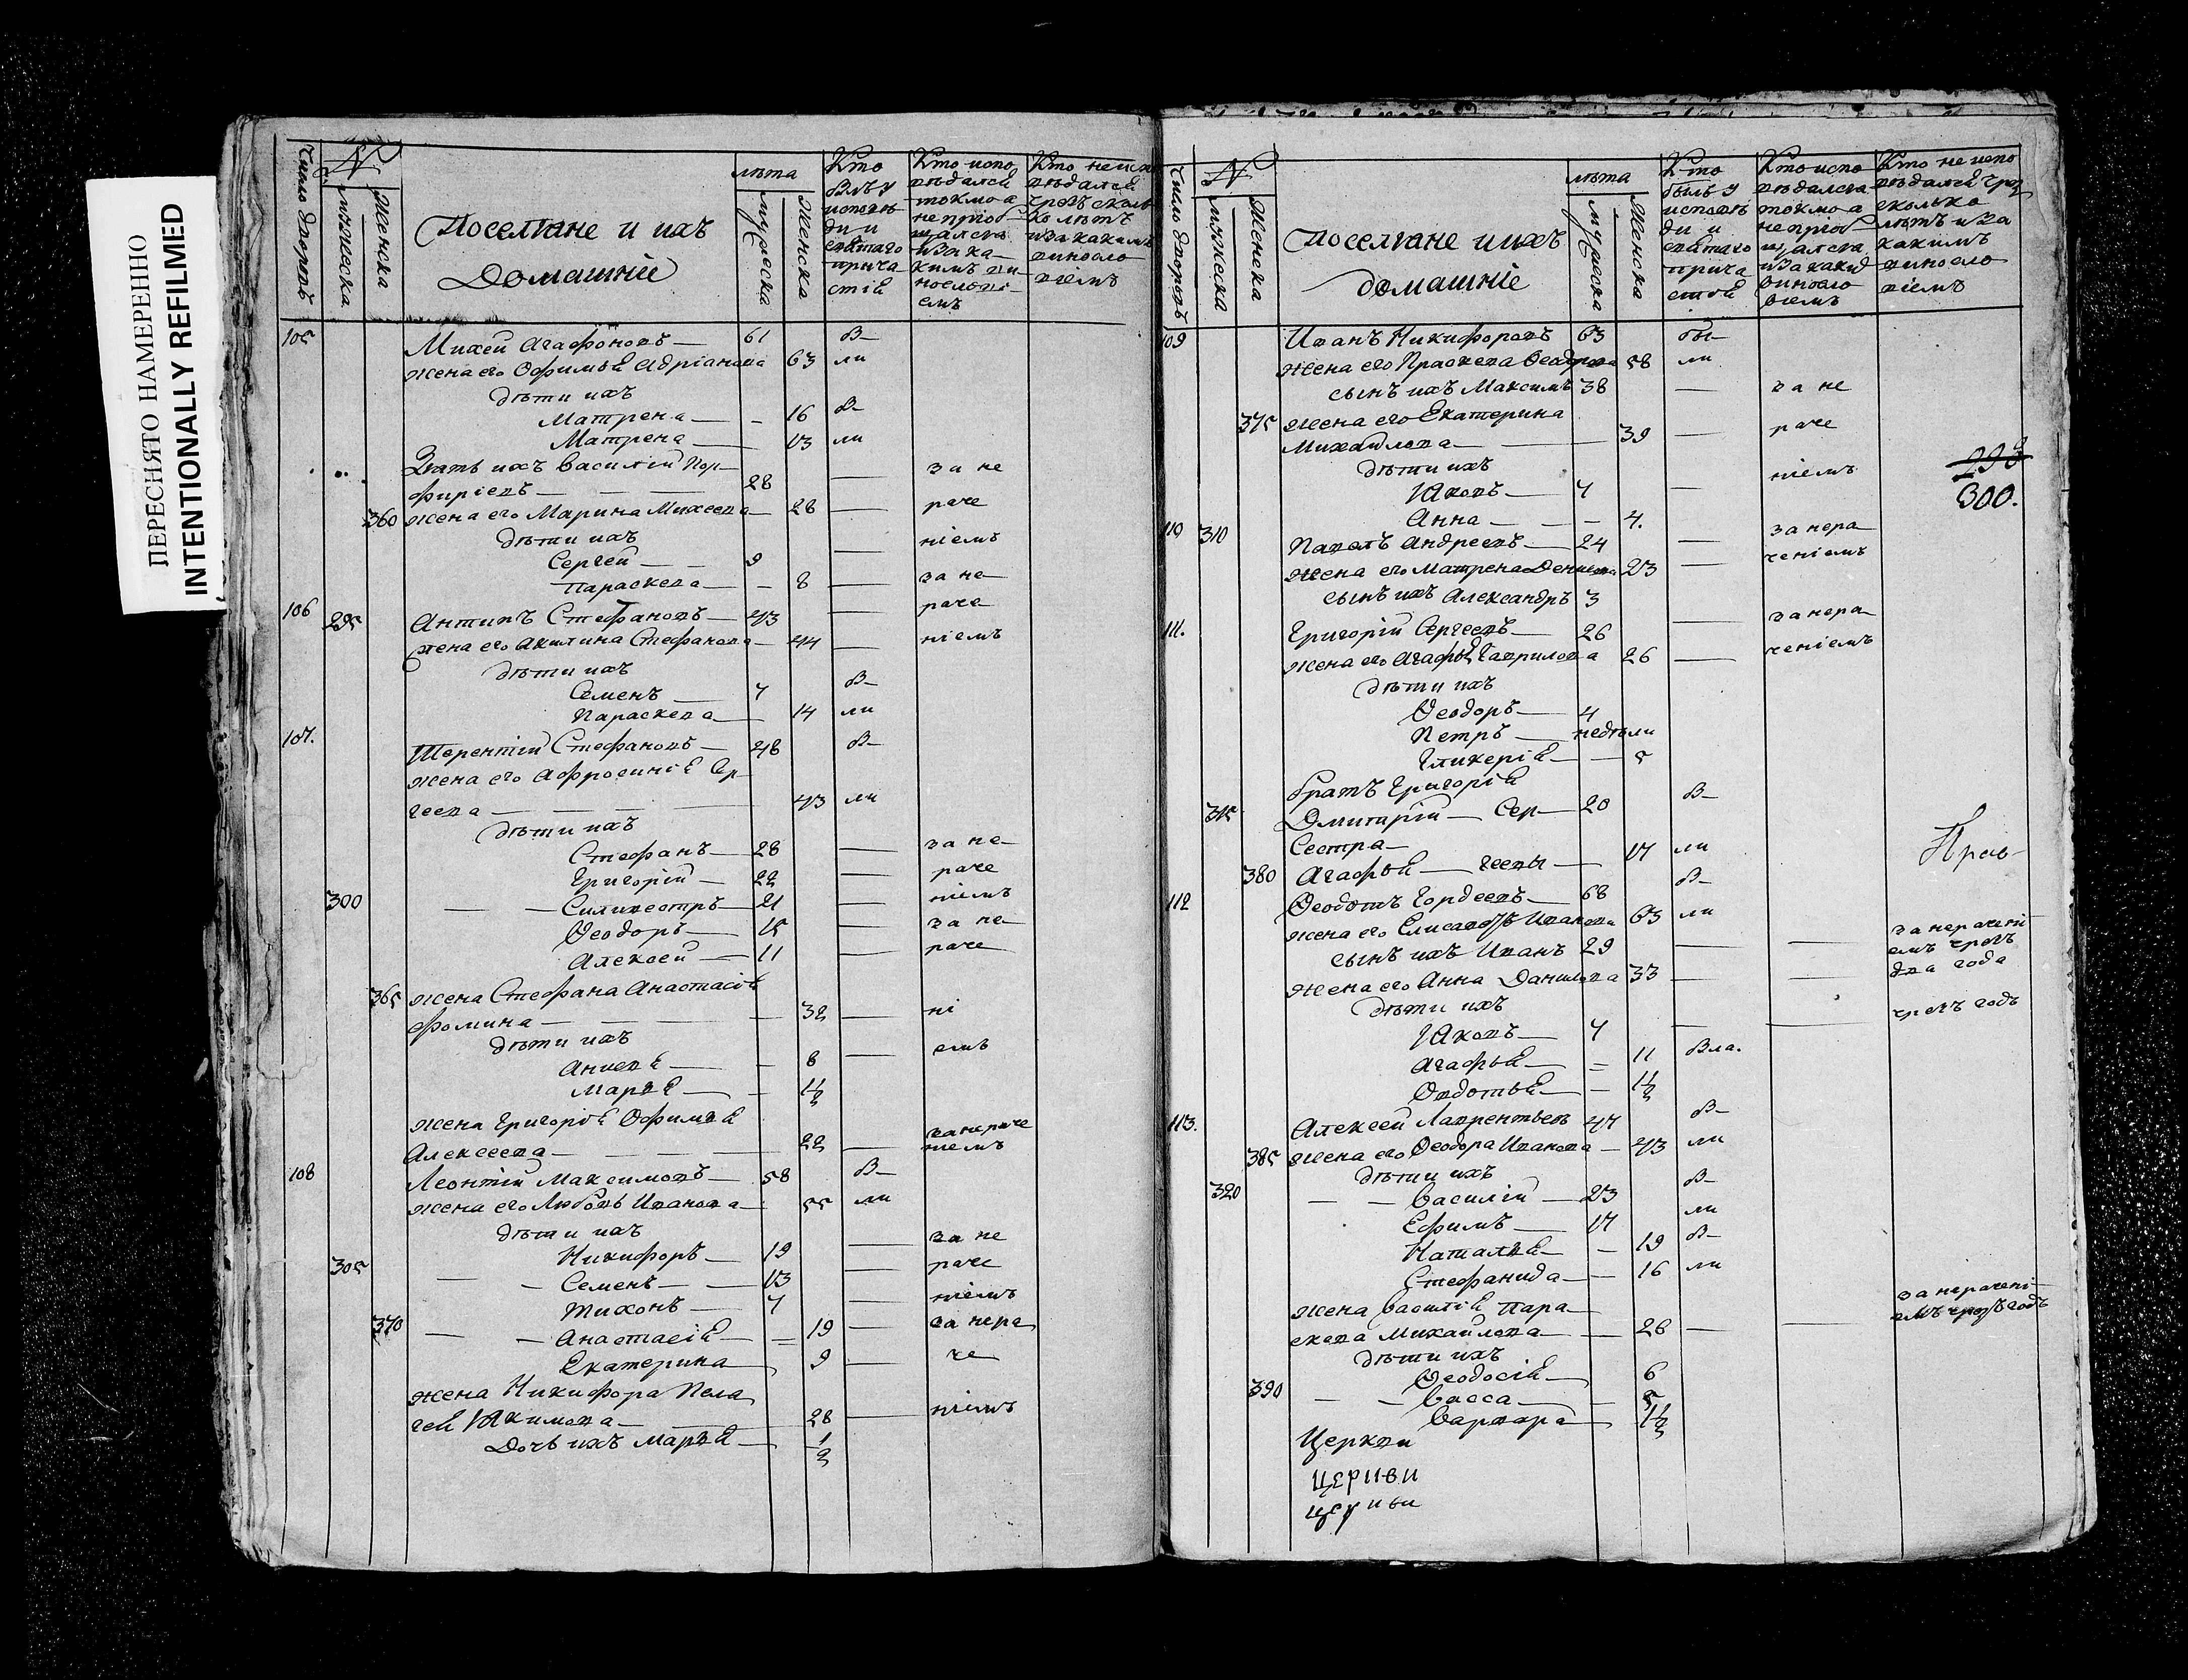 ПЕРЕСНЯТО НАМЕРЕННО
INTENTIONALLY REFILMED
Число дворовъ
№
мужеска
Женска
Поселяне и ихъ
Домашніе
лѣта
мужеска
Женска
Кто
былъ у
исповѣ
ди и
святаго
прича
стія
Кто испо
вѣдался
токмо а
не пріоб
щался
и за ка
кимъ ви
нослові
емъ
Кто не испо
вѣдался
чрезъ сколь
ко лѣтъ
и за какимъ
виносло
віемъ
105 Михей Агафоновъ — 61 В—
жена его Офимья Адріанова 63 ли
дѣти ихъ
Матрена — - 16 В—
Матрена — 13 ли
Зять ихъ Василій Пор
фиріевъ — — — 28 — за не
360 жена его Марина Михеева — 28 — раче
дѣти ихъ
Сергей — - 9 — ніемъ
Параскева — - 8 — за не
106 295 Антипъ Стефановъ — 43 — раче
жена его Акилина Стефанова — 44 — ніемъ
дѣти ихъ
Семенъ — 7 В—
Параскева — 14 ли
107. Терентій Стефановъ — 48 В—
жена его Афросинія Сер
геева — — — 43 ли
дѣти ихъ
Стефанъ — 28 — за не
Григорій — 22 — раче
300 — — Сильвестръ — 21 — ніемъ
Феодоръ — 15 — за не
Алексей — 11 — раче
365 жена Стефана Анастасія
Фомина — — — 32 — ні
дѣти ихъ
Анисья — - 8 — емъ
Марья — - 1½
жена Григорія Офимья
Алексеева — — — 22 — за нераче
ніемъ
108 Леонтій Максимовъ — 58 В—
жена его Любовь Иванова — 55 ли
дѣти ихъ
Никифоръ — 19 — за не
305 — - Семенъ — — 13 — раче
Тихонъ — 7 — ніемъ
370 — - Анастасія — = 19 — за нера
Екатерина — 9 — че
жена Никифора Пела
гея Якимова — — 28 — ніемъ
Дочь ихъ Марья — ½
Число дворовъ
№
мужеска
Женска
Поселяне и ихъ
домашніе
лѣта
мужеска
Женска
Кто
былъ у
исповѣ
ди и
святаго
прича
стія
Кто испо
вѣдался
токмо а
не пріоб
щался
и за каки
винсло
віемъ
Кто не испо
вѣдался чрез
сколько
лѣтъ и за
какимъ
винсло
віемъ
109 Иванъ Никифоровъ 63 бы—
жена его Праскева Феодорова 58 ли
сынъ ихъ Максимъ 38 — за не
375 жена его Екатерина
Михайлова — — — 39 — раче
дѣти ихъ
Яковъ — 7 — ніемъ
300.
Анна — — - 4.
110 310 Павелъ Андреевъ — 24 — за нера
жена его Матрена Денисова 23 — ченіемъ
сынъ ихъ Александръ 3
111. Григорій Сергеевъ — 26 — за нера
жена его Агафья Гаврилова 26 — ченіемъ
дѣти ихъ
Феодоръ — 4
Петръ — недѣли
Гликерія — — 5
братъ Григорія
315 Дмитрій — Сер — 20 В—
Сестра —
380 Агафья — геевы — 17 ли
112 Феодотъ Гордеевъ — 68 В—
жена его Елисаветъ Иванова 63 ли
сынъ ихъ Иванъ 29 — — за нерачені
емъ чрезъ
жена его Анна Данилова 33 — — два года
дѣти ихъ
Яковъ — 7 — — чрезъ годъ
Агафья — = 11 Вла.
Овдотья — - 1½
113. Алексей Лаврентьевъ 47 В—
385 жена его Феодора Иванова — 43 ли
дѣти ихъ
320 — — Василій — 23 В—
Ефимъ — 17 ли
Наталья — - 19 В—
Стефанида — - 16 ли
жена Василія Пара
скева Михайлова — — 26 — — за нерачені
емъ чрезъ годъ
дѣти ихъ
Феодосія — 6
390 — - Васса — - 5
Варвара — 1½
Церкви
Церкви
церкви